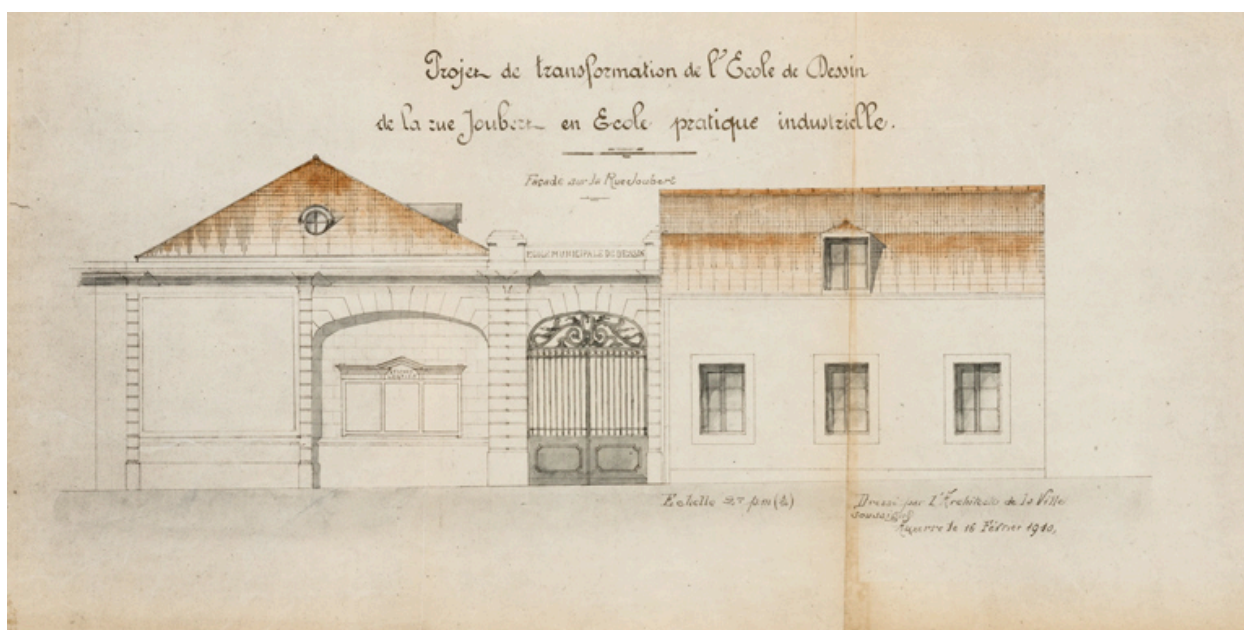 Projet de transformation de l'Ecole de Dessin
de la rue Joubert en Ecole pratique industrielle.
Façade sur la Rue Joubert
ECOLE MUNICIPALE DE DESSIN
Echelle
Dressé par l'Architecte de la Ville
soussigné
Auxerre le 16 Février 1910.